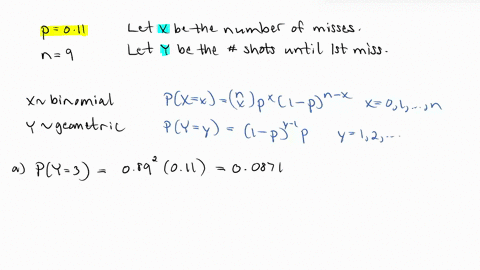 p = 0.11 Let X be the number of misses.
n = 9 Let Y be the # shots until 1st miss.
X ~ binomial P(X=x) = (n x) p^x (1-p)^{n-x} x = 0, 1, ..., n
Y ~ geometric P(Y=y) = (1-p)^{y-1} p y = 1, 2, ...
a) P(Y=3) = 0.89² (0.11) = 0.0871